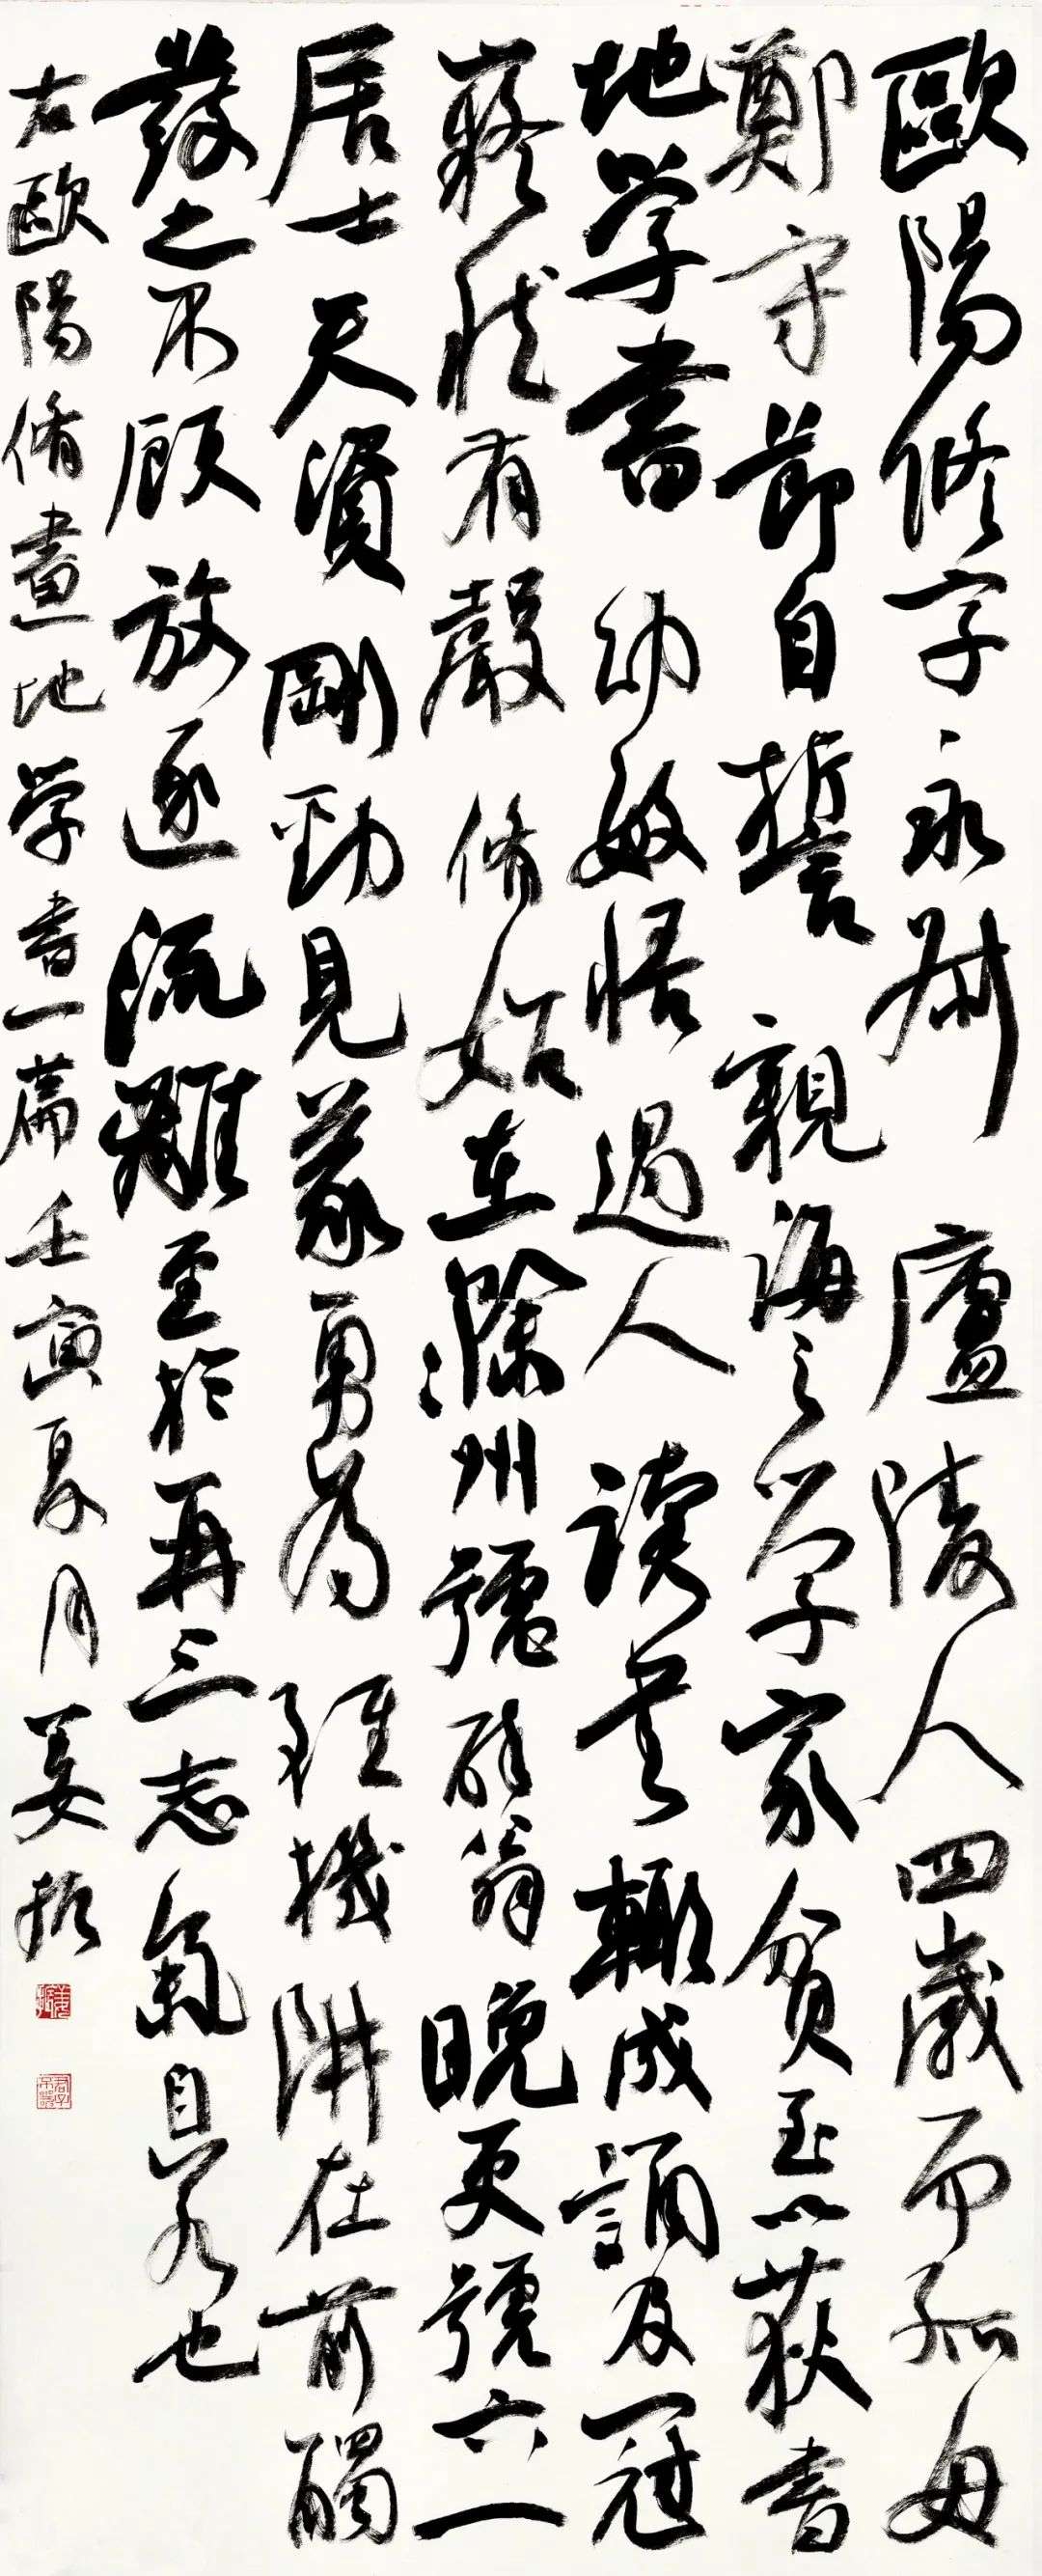 歐陽修字永叔廬陵人四歲而孤母
鄭守節自誓親誨之學家貧至以荻書
地学書幼敏悟過人讀書輒成誦及冠
嶷然有聲脩始在滁州號醉翁晚更號六一
居士天資剛勁見義勇為雖機阱在前觸
發之不顧放逐流離至於再三志氣自若也
右歐陽脩畫地学書一篇壬寅夏月姜振